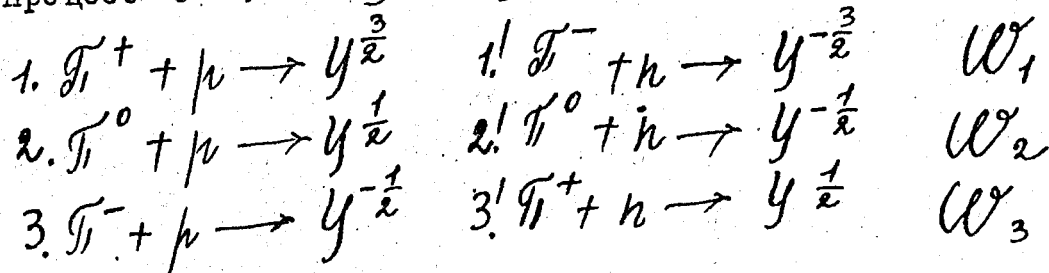 процесс
1. π⁺ + p → Y^{3/2} 1'. π⁻ + n → Y^{-3/2} W₁
2. π⁰ + p → Y^{1/2} 2'. π⁰ + n → Y^{-1/2} W₂
3. π⁻ + p → Y^{-1/2} 3'. π⁺ + n → Y^{1/2} W₃